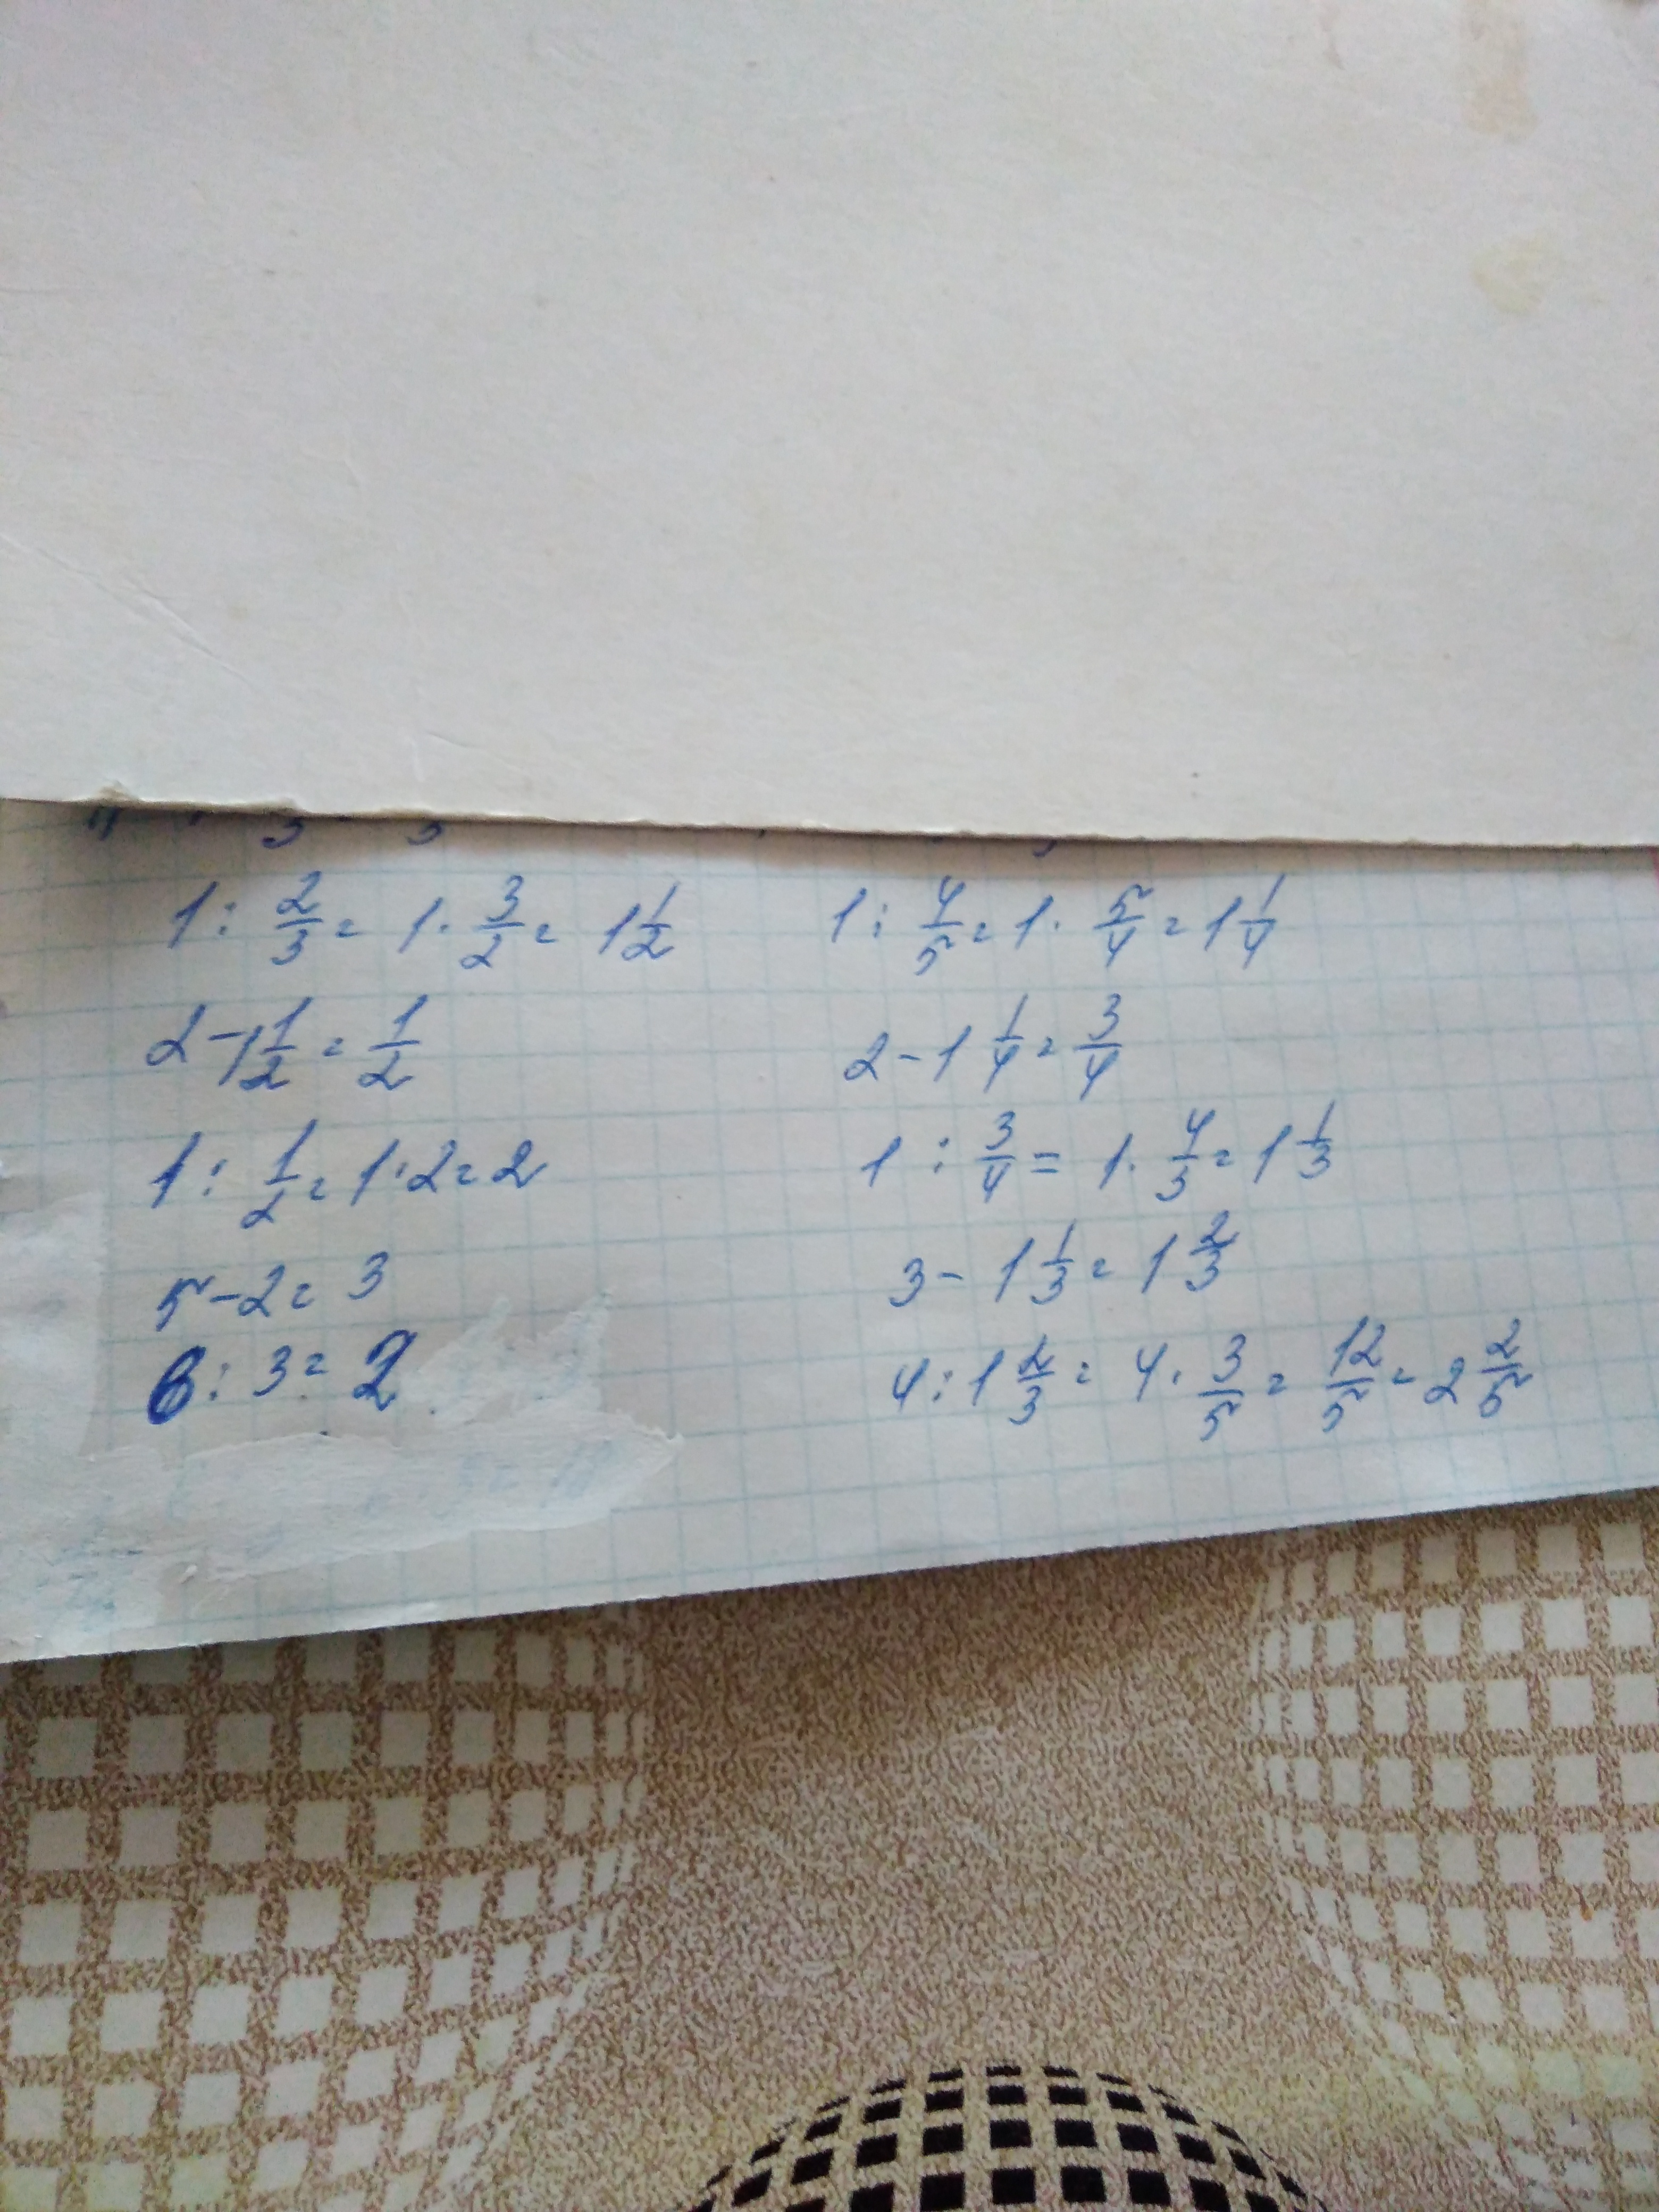 1 : 2/3 = 1 · 3/2 = 1 1/2
2 - 1 1/2 = 1/2
1 : 1/2 = 1 · 2 = 2
5 - 2 = 3
6 : 3 = 2
1 : 4/5 = 1 · 5/4 = 1 1/4
2 - 1 1/4 = 3/4
1 : 3/4 = 1 · 4/3 = 1 1/3
3 - 1 1/3 = 1 2/3
4 : 1 2/3 = 4 · 3/5 = 12/5 = 2 2/5